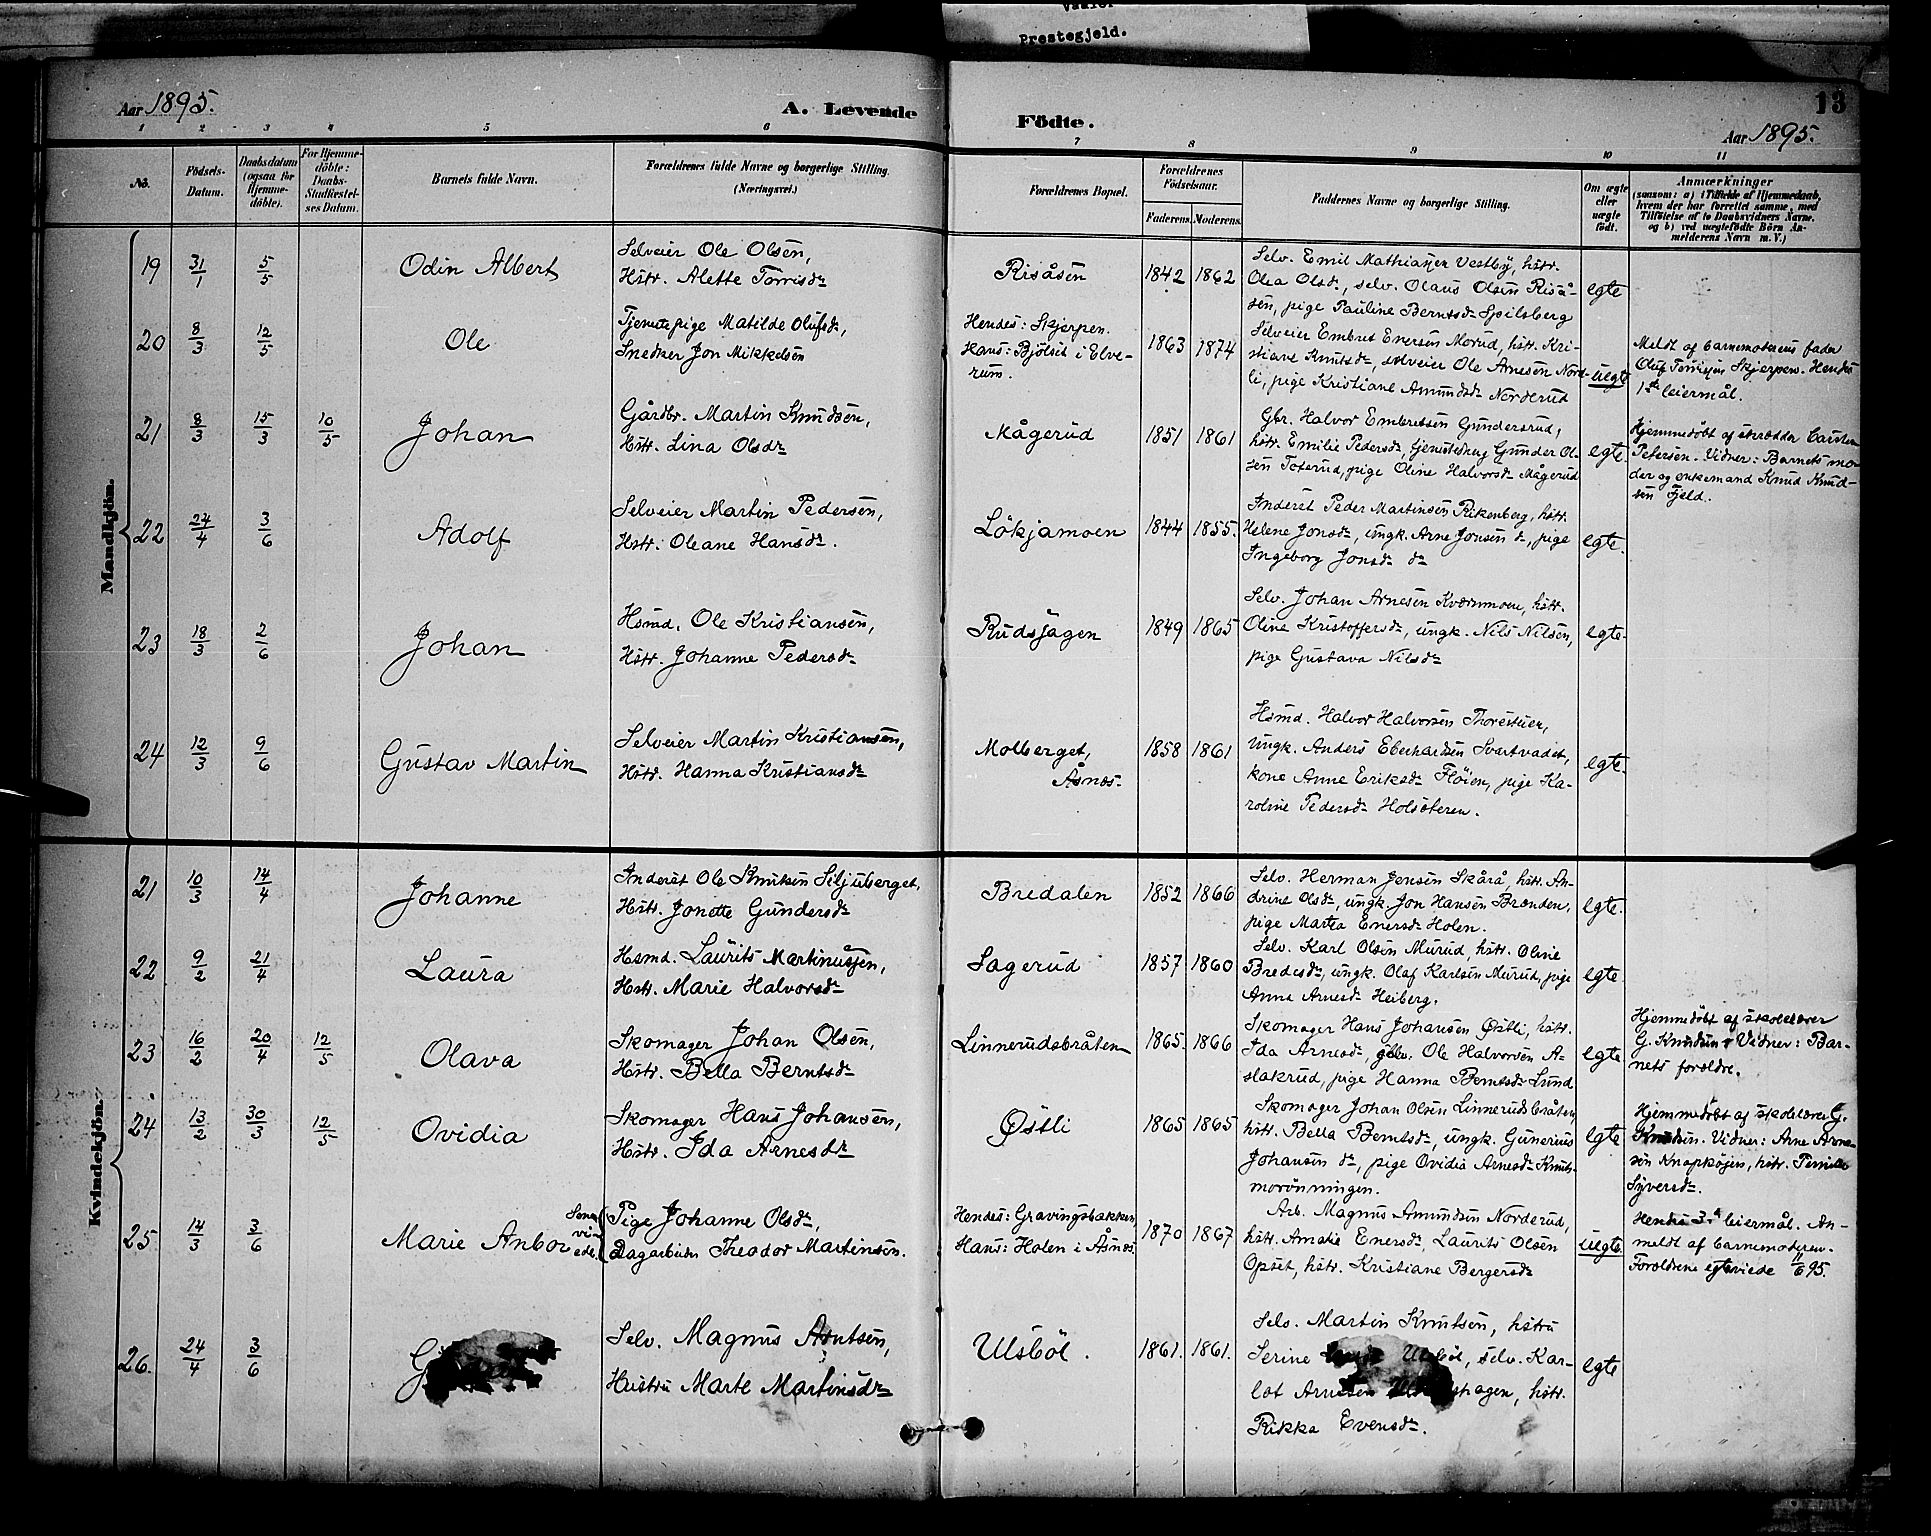 Vaaler
Prestegjeld.
Aar 1895.
A. Levende Födte.
13
Aar 1895.
1 2 3 4 5 6 7 8 9 10 11
No.
Födsels-
Datum.
Daabsdatum
(ogsaa for
Hjemme-
döbte).
For Hjemme-
döbte:
Daabs-
Stadfæstel-
ses Datum.
Barnets fulde Navn.
Forældrenes fulde Navne og borgerlige Stilling.
(Næringsvei.)
Forældrenes Bopæl.
Forældrenes
Födselsaar.
Faderens. Moderens.
Faddernes Navne og borgerlige Stilling.
Om ægte
eller
uægte
födt.
Anmærkninger
(saasom: a) i Tilfælde af Hjemmedaab,
hvem der har forrettet samme, med
Tilföielse af to Daabsvidners Navne.
og b) ved uægtefödte Börn An-
melderens Navn m. V.)
Mandkjön.
19 31/1 5/5
Odin Albert
Selveier Ole Olsen,
Hstr. Alette Torrisdr
Risåsen
1842 1862
Selv. Emil Mathiassen Vestby, hstr.
Olea Olsdr, selv. Olaus Olsen Riså-
sen, pige Pauline Berntsdr Spilsberg
egte
20 8/3 12/5
Ole
Tjenestepige Matilde Olufsdr,
Snedker Jon Mikkelsen
Hendes: Skjerpen.
Hans: Bjölset i Elve-
rum.
1863 1874
Selveier Embret Enersen Morud, hstr. Kri-
stiane Knutsdr, selveier Ole Arnesen Nord-
li, pige Kristiane Amundsdr Norderud
uegte
Meldt af barnemoderens fader
Oluf Skjerpen. Hendes
1ste leiermål.
21 8/3 15/3 10/5
Johan
Gårdbr. Martin Knudsen,
Hstr. Lina Olsdr
Mågerud
1851 1861
Gbr. Halvor Embretsen Gundersrud,
hstr. Emilie Pedersdr, Gunder Ol-
sen Teterud, pige Oline Halvorsdr Mågerud
egte.
Hjemmedöbt af skrædder Carsten
Petersen. Vidner: Barnets mo-
der og enkemand Knud Knud-
sen Fjeld.
22 24/4 3/6
Adolf
Selveier Martin Pedersen,
Hstr. Oleane Hansdr.
Lökjamoen
1844 1855.
Inderst Peder Martinsen Rikenberg, hstr.
Helene Jonsdr, ungk. Arne Jonsen do, pige
Ingeborg Jonsdr do
egte.
23 18/3 2/6
Johan
Hsmd. Ole Kristiansen,
Hstr. Johanne Pedersdr
Rudshagen
1849 1865
Selv. Johan Arnesen Kværnmoen, hstr.
Oline Kristoffersdr, ungk. Nils Nilsen,
pige Gustava Nilsdr
egte.
24 12/3 9/6
Gustav Martin
Selveier Martin Kristiansen,
Hstr. Hanna Kristiansdr
Molberget,
Åsnæs.
1858 1861
Hsmd. Halvor Halvorsen Thorestuen,
Ungk. Anders Eberhardsen Svartvadet,
kone Anne Eriksdr Flöien, pige Ka-
roline Pedersdr Holsæteren.
egte.
Kvindekjön.
21 10/3 14/4
Johanne
Inderst Ole Knutsen Siljuberget,
Hstr. Jonette Gundersdr
Bredalen
1852 1866
Selv. Herman Jensen Skårå, hstr. An-
drine Olsdr, ungk. Jon Hansen Brænden,
pige Marta Enersdr Holen.
egte.
22 9/2 21/4
Laura
Hsmd. Laurits Martinussen,
Hstr. Marie Halvorsdr
Sagerud
1857 1860
Selv. Karl Olsen Murud, hstr. Oline
Bredesdr, ungk. Olaf Karlsen Murud, pige
Anna Arnesdr Heiberg.
egte
23 16/2 20/4 12/5
Olava
Skomager Johan Olsen,
Hstr. Bella Berntsdr
Linnerudsbråten
1865. 1866
Skomager Hans Johansen Østli, hstr.
Ida Arnesdr, selv. Ole Halvorsen A-
slakrud, pige Hanna Berntsdr Lund
egte
Hjemmedöbt af skolelærer
G. Knudsen. Vidner: Bar-
nets forældre.
24 13/2 30/3 12/5
Ovidia
Skomager Hans Johansen,
Hstr. Ida Arnesdr
Østli
1865 1865
Skomager Johan Olsen Linnerudsbråten,
hstr. Bella Berntsdr, ungk. Gunerius
Johansen do, pige Ovidia Arnesdr Knuts-
morönningen.
egte
Hjemmedöbt af skolelærer G.
Knudsen. Vidner: Arne Arne-
sen Knapkojen, hstr. Pernille
Syversdr.
25 14/3 3/6
Marie Anbor
Pige Johanne Olsdr,
Dagarbeider Theodor Martinsen.
Hendes: Gravingsbakken,
Hans: Holen i Åsnæs.
1870 1867
Arb. Magnus Amundsen Norderud,
hstr. Amalie Enersdr, Laurits Olsen
Opset, hstr. Kristiane Bergersdr
uegte
Hendes 3die leiermål. An-
meldt af barnemoderen.
Forældrene egteviede 11/6 95.
26. 24/4 3/6
G
Selv. Magnus Arntsen,
Hustru Marte Martinsdr
Ulsböl.
1861. 1861.
Selv. Martin Knutsen, hstru
Serine Ulsböl, selv. Kar-
lot Arnesen hagen, hstr.
Rikka Evensdr.
egte